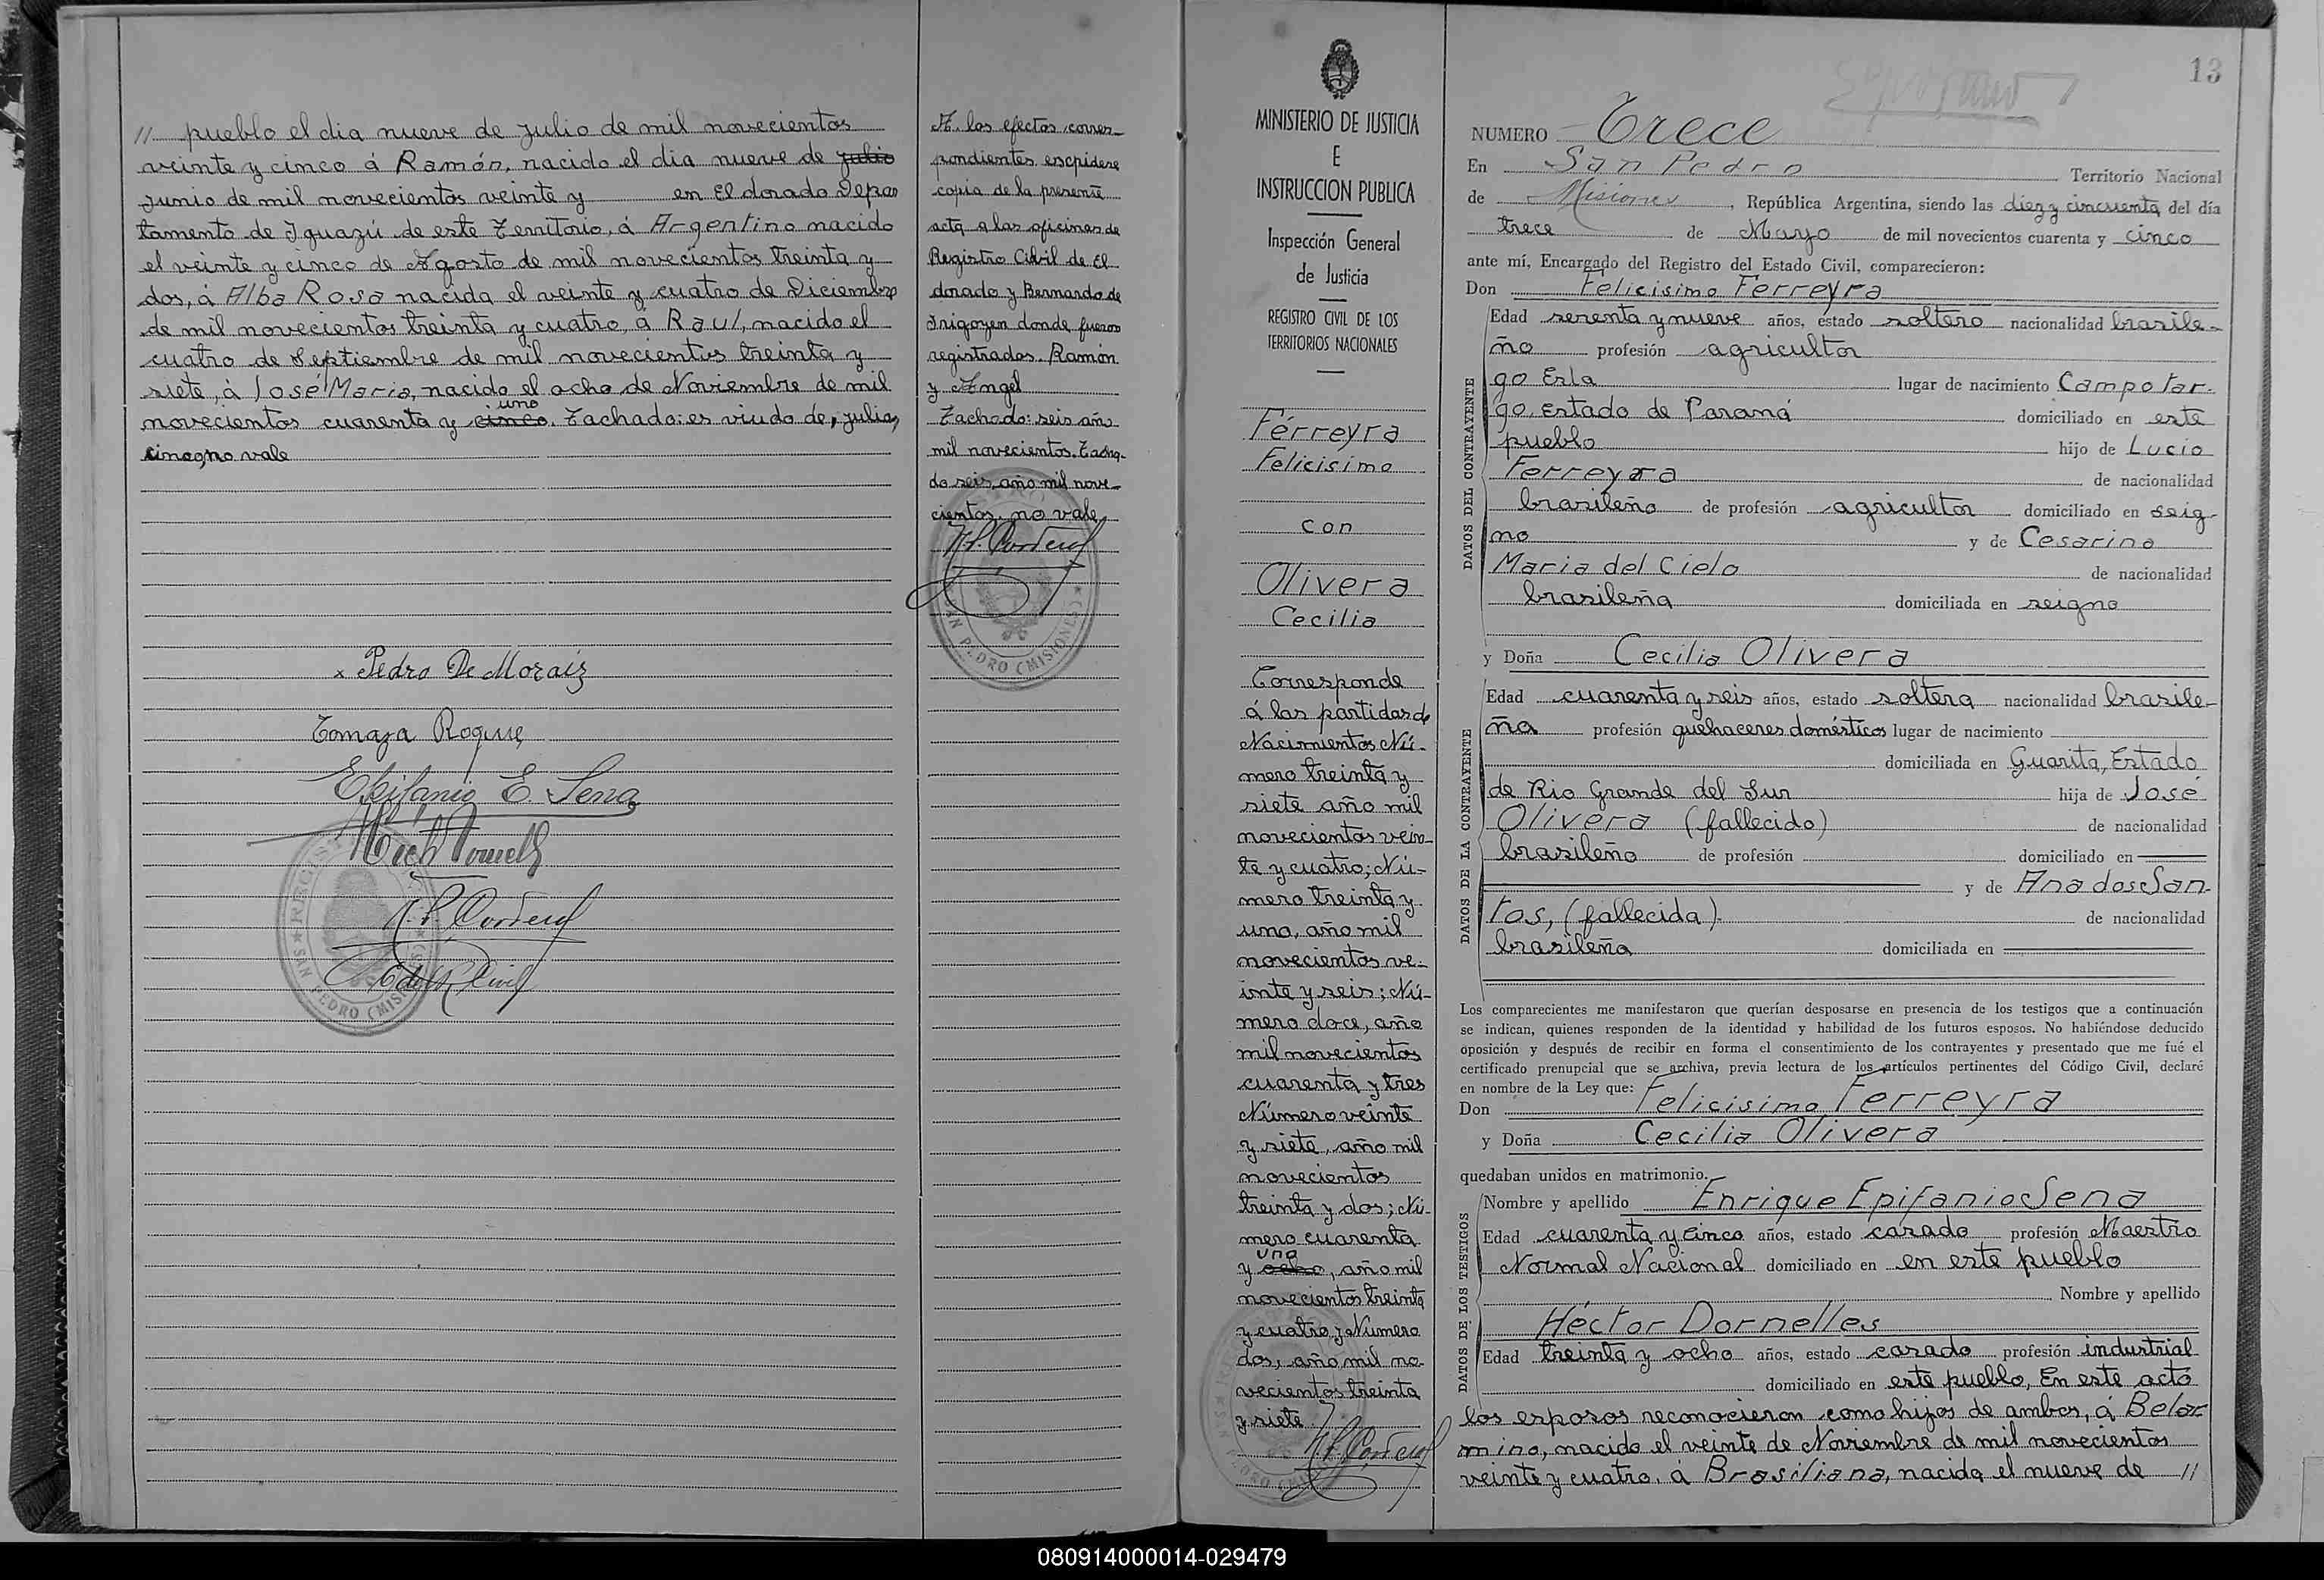 // pueblo el dia nueve de Julio de mil novecientos
veinte y cinco á Ramón, nacido el dia nueve de julio
Junio de mil novecientos veinte y en El dorado Depar
tamento de Iguazú de este Territorio, á Argentino nacido
el veinte y cinco de Agosto de mil novecientos treinta y
dos, á Alba Rosa nacida el veinte y cuatro de Diciembre
de mil novecientos treinta y cuatro, á Raul, nacido el
cuatro de Septiembre de mil novecientos treinta y
siete, á José Maria, nacido el ocho de Noviembre de mil
uno
novecientos cuarenta y cinco. Tachado: es viudo de, julio,
cinco, no vale
x Pedro De Moraiz
Tomaza Roque
Epifanio E. Sena
Edo. R. Civil
A los efectos corres-
pondientes escpidese
copia de la presente
acta a las oficinas de
Registro Civil de El
dorado y Bernardo de
Irigoyen donde fueron
registrados. Ramón
y Angel
Tachado: seis año
mil novecientos. Tacha-
do seis, año mil nove-
cientos, no vale
SAN PEDRO (MISIONES)
MINISTERIO DE JUSTICIA
E
INSTRUCCION PUBLICA
Inspección General
de Justicia
REGISTRO CIVIL DE LOS
TERRITORIOS NACIONALES
Ferreyra
Felicisimo
con
Olivera
Cecilia
Corresponde
á las partidas de
Nacimientos Nú-
mero treinta y
siete año mil
novecientos vein-
te y cuatro; Nú-
mero treinta y
uno, año mil
novecientos ve-
inte y seis; Nú-
mero doce, año
mil novecientos
cuarenta y tres
Número veinte
y siete, año mil
novecientos
treinta y dos; Nú-
mero cuarenta
uno
y ocho, año mil
novecientos treinta
y cuatro y Numero
dos, año mil no-
vecientos treinta
y siete
13
NUMERO Trece
En San Pedro Territorio Nacional
de Misiones, República Argentina, siendo las diez y cincuenta del día
trece de Mayo de mil novecientos cuarenta y cinco
ante mí, Encargado del Registro del Estado Civil, comparecieron:
Don Felicisimo Ferreyra
DATOS DEL CONTRAYENTE
Edad sesenta y nueve años, estado soltero nacionalidad brasile-
ño profesión agricultor
go Esta lugar de nacimiento Campo Lar-
go. Estado de Paraná domiciliado en este
pueblo hijo de Lucio
Ferreyra de nacionalidad
brasileño de profesión agricultor domiciliado en seig-
no y de Cesarina
Maria del Cielo de nacionalidad
brasileña domiciliada en seigno
y Doña Cecilia Olivera
DATOS DE LA CONTRAYENTE
Edad cuarenta y seis años, estado soltera nacionalidad brasile-
ña profesión quehaceres domésticos lugar de nacimiento
domiciliada en Guarita, Estado
de Rio Grande del Sur hija de José
Olivera (fallecido) de nacionalidad
brasileño de profesión domiciliado en
y de Ana dos San-
tos, (fallecida). de nacionalidad
brasileña domiciliada en
Los comparecientes me manifestaron que querían desposarse en presencia de los testigos que a continuación
se indican, quienes responden de la identidad y habilidad de los futuros esposos. No habiéndose deducido
oposición y después de recibir en forma el consentimiento de los contrayentes y presentado que me fué el
certificado prenupcial que se archiva, previa lectura de los artículos pertinentes del Código Civil, declaré
en nombre de la Ley que:
Don Felicisimo Ferreyra
y Doña Cecilia Olivera
quedaban unidos en matrimonio.
DATOS DE LOS TESTIGOS
Nombre y apellido Enrique Epifanio Sena
Edad cuarenta y cinco años, estado casado profesión Maestro
Normal Nacional domiciliado en en este pueblo
Nombre y apellido
Héctor Dornelles
Edad treinta y ocho años, estado casado profesión industrial
domiciliado en este pueblo, En este acto
los esposos reconocieron como hijos de ambos, á Belar-
mino, nacido el veinte de Noviembre de mil novecientos
veinte y cuatro, á Brasiliana, nacida el nueve de //
080914000014-029479